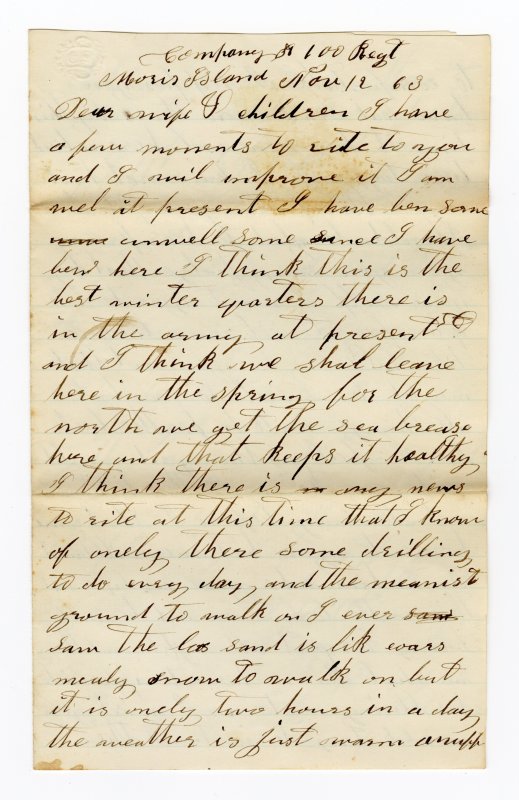 Company H 100 Regt
Moris Island Nov 12 63
Dear wife & children I have
a few moments to rite to you
and I wil improve it I am
wel at present I have ben some
unwell some since I have
ben here I think this is the
best winter quarters there is
in the army at present
and I think we shal leave
here in the spring for the
north we get the sea brease
here and that keeps it healthy
I think there is any news
to rite at this time that I know
of onely there some drilling
to do every day and the meanist
ground to walk on I ever saw
saw the sand is lik
mealy snow to walk on but
it is onely two hours in a day
the weather is just warm enupp